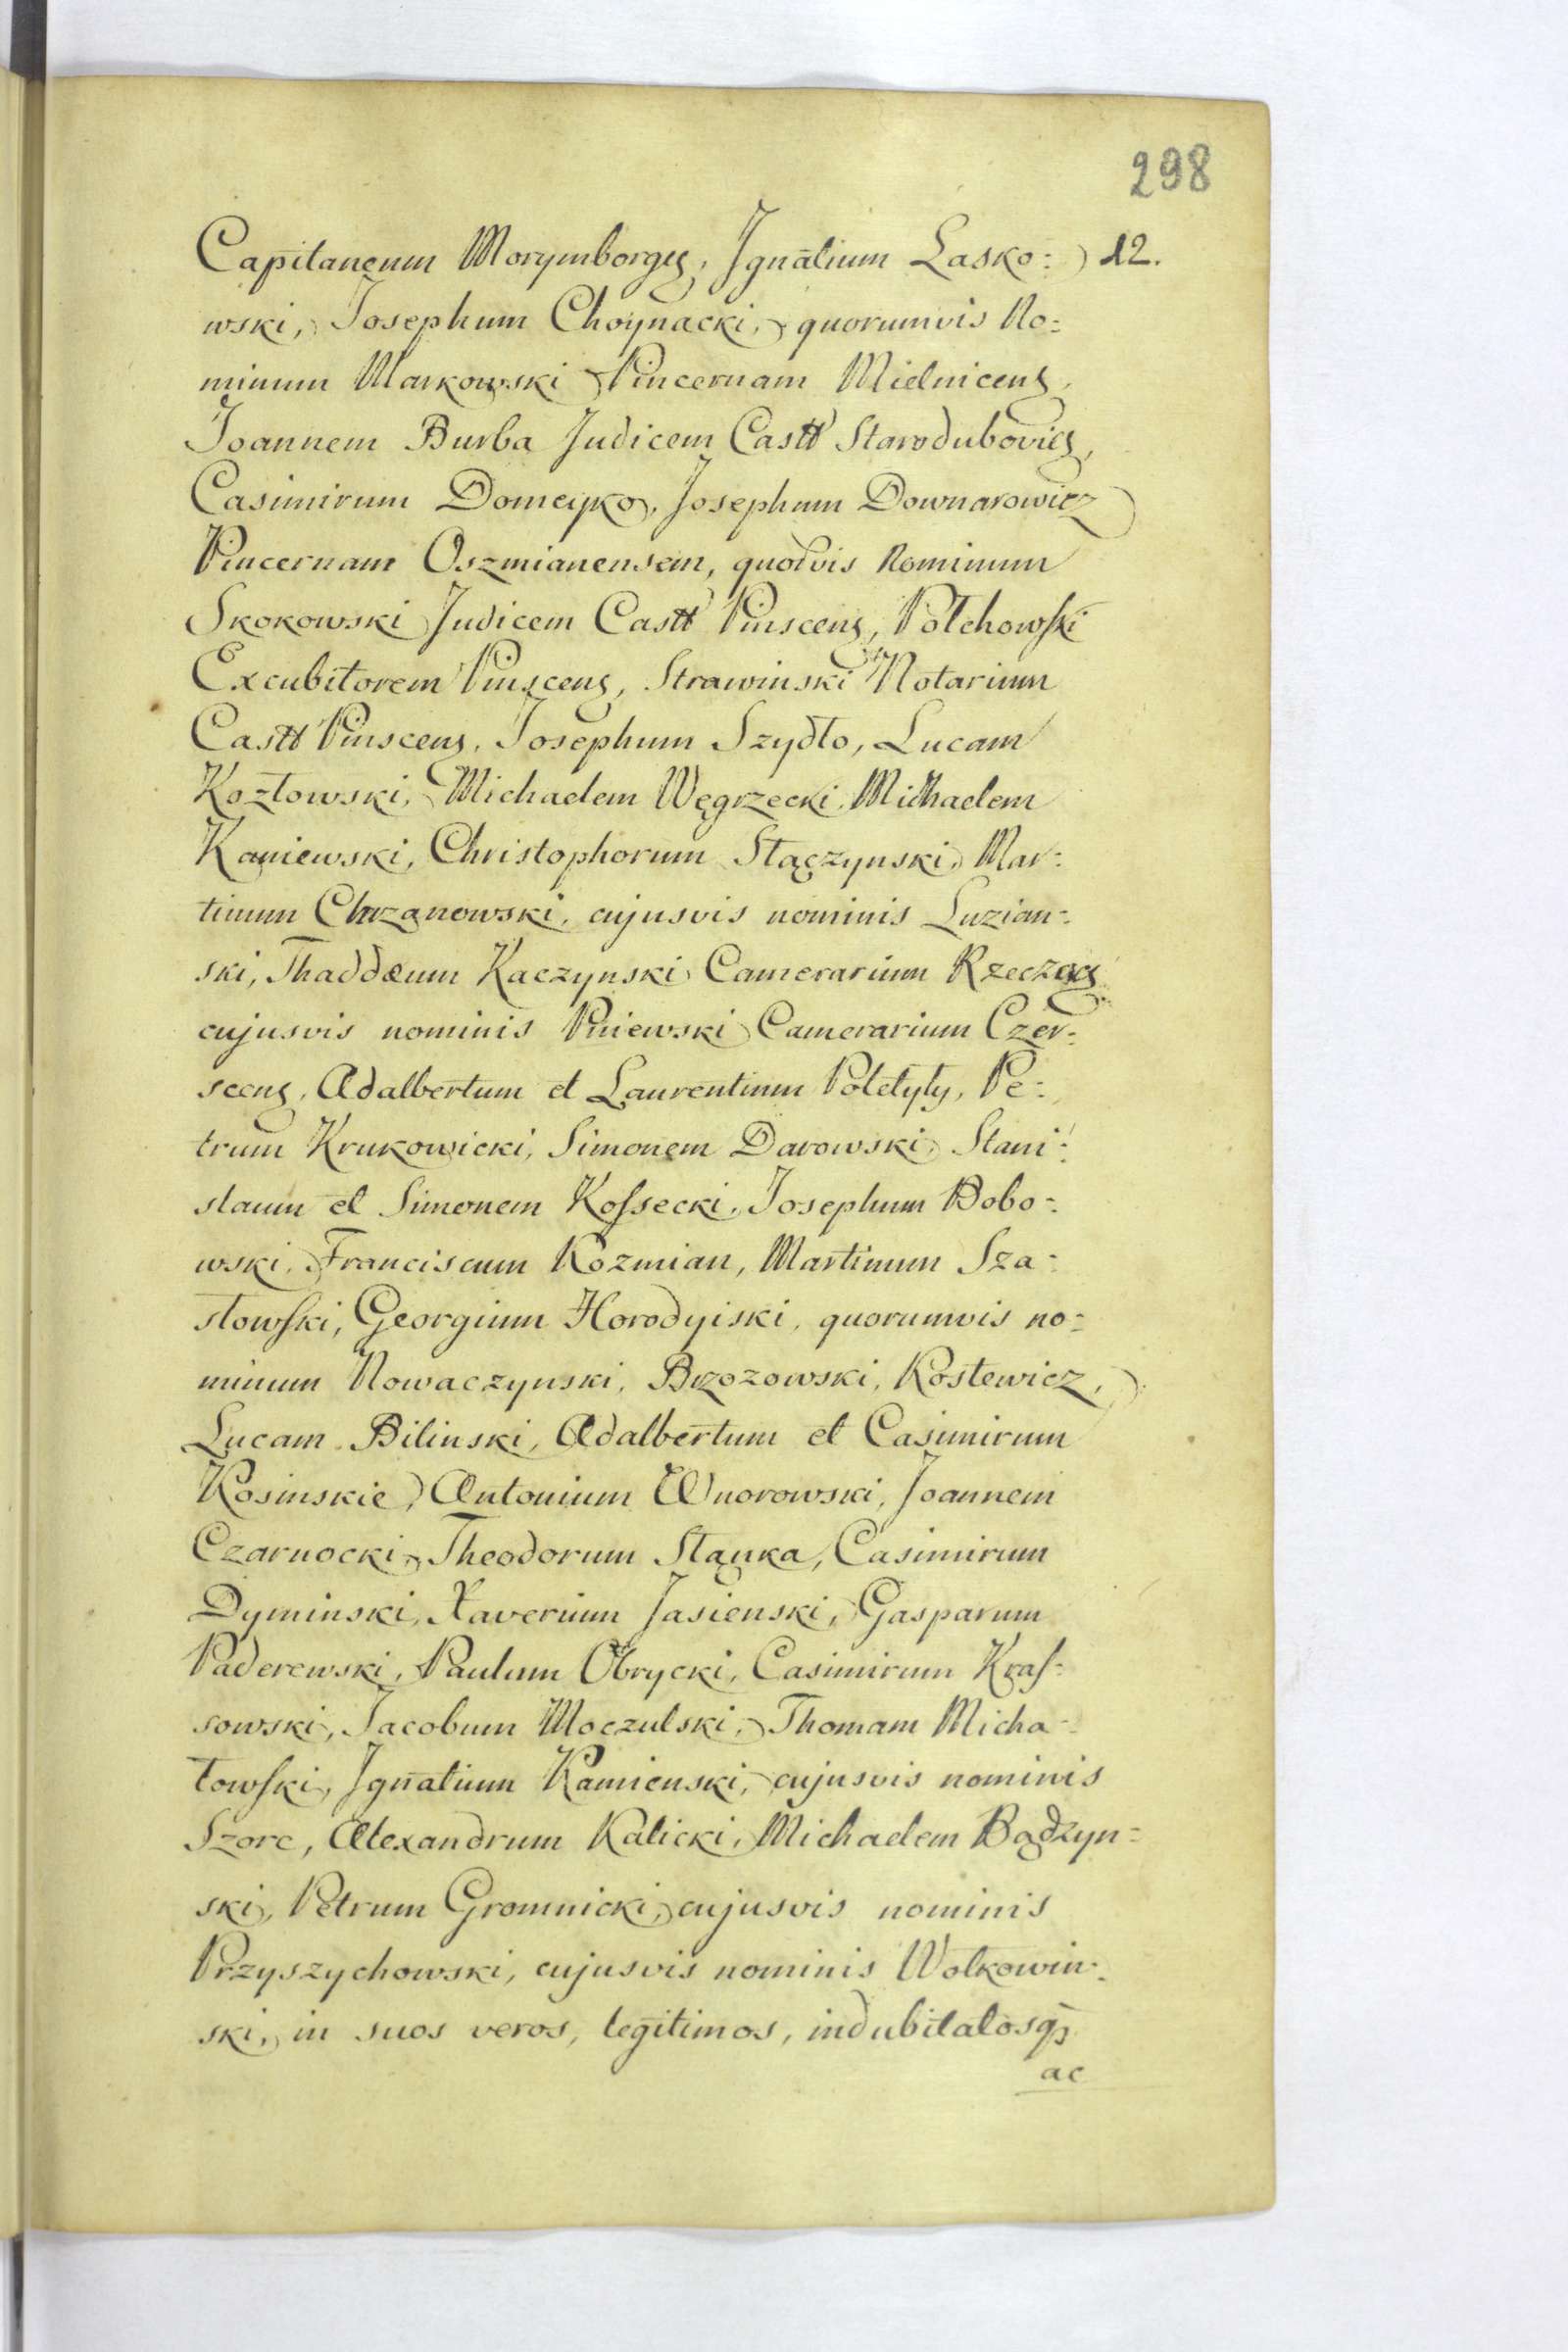 298
Capitaneum Morymborgẽs, Ignatium Lasko= 12.
wski, Josephum Choynacki, quorumvis No=
minum Markowski Pincernam Mielnicens,
Joannem Burba Judicem Castt Starodubovies,
Casimirum Domeyko, Josephum Downarowicz
Pincernam Oszmianensem, quorvis Nominum
Skokowski Judicem Castt Pinscens, Połchowski
Excubitorem Pinscens, Strawinski Notarium
Castt Pinscens, Josephum Szydło, Lucam
Kozłowski, Michaelem Węgrzecki Michaelem
Kaniewski, Christophorum Stączynski, Mar=
tinum Chrzanowski, cujusvis nominis Luzian=
ski, Thaddæum Kaczynski Camerarium
cujusvis nominis Pniewski Camerarium Czer=
scens, Adalbertum et Laurentium Poletyły, Pe=
trum Krukowicki, Simonem Darowski, Stani=
slaum et Simonem Kossecki, Josephum Bobo=
wski, Franciscum Kozmian, Martinum Sza=
słowski, Georgium Horodyiski, quorumvis no=
minum Nowaczynski, Brzozowski, Kostewicz,
Lucam Bilinski, Adalbertum et Casimirum
Kosinskie, Antonium Wnorowski, Joannem
Czarnocki, Theodorum Stanka, Casimirum
Dyminski, Xaverium Jasienski, Gasparum
Paderewski, Paulum Obrycki, Casimirum Kras=
sowski, Jacobum Moczulski, Thomam Micha=
łowski, Ignatium Kamienski, cujusvis nominis
Szorc, Alexandrum Kalicki, Michaelem Bądzyn=
ski, Petrum Gromnicki, cujusvis nominis
Przyszychowski, cujusvis nominis Wolkowin=
ski, in suos veros, legitimos, indubitatosq̃
ac